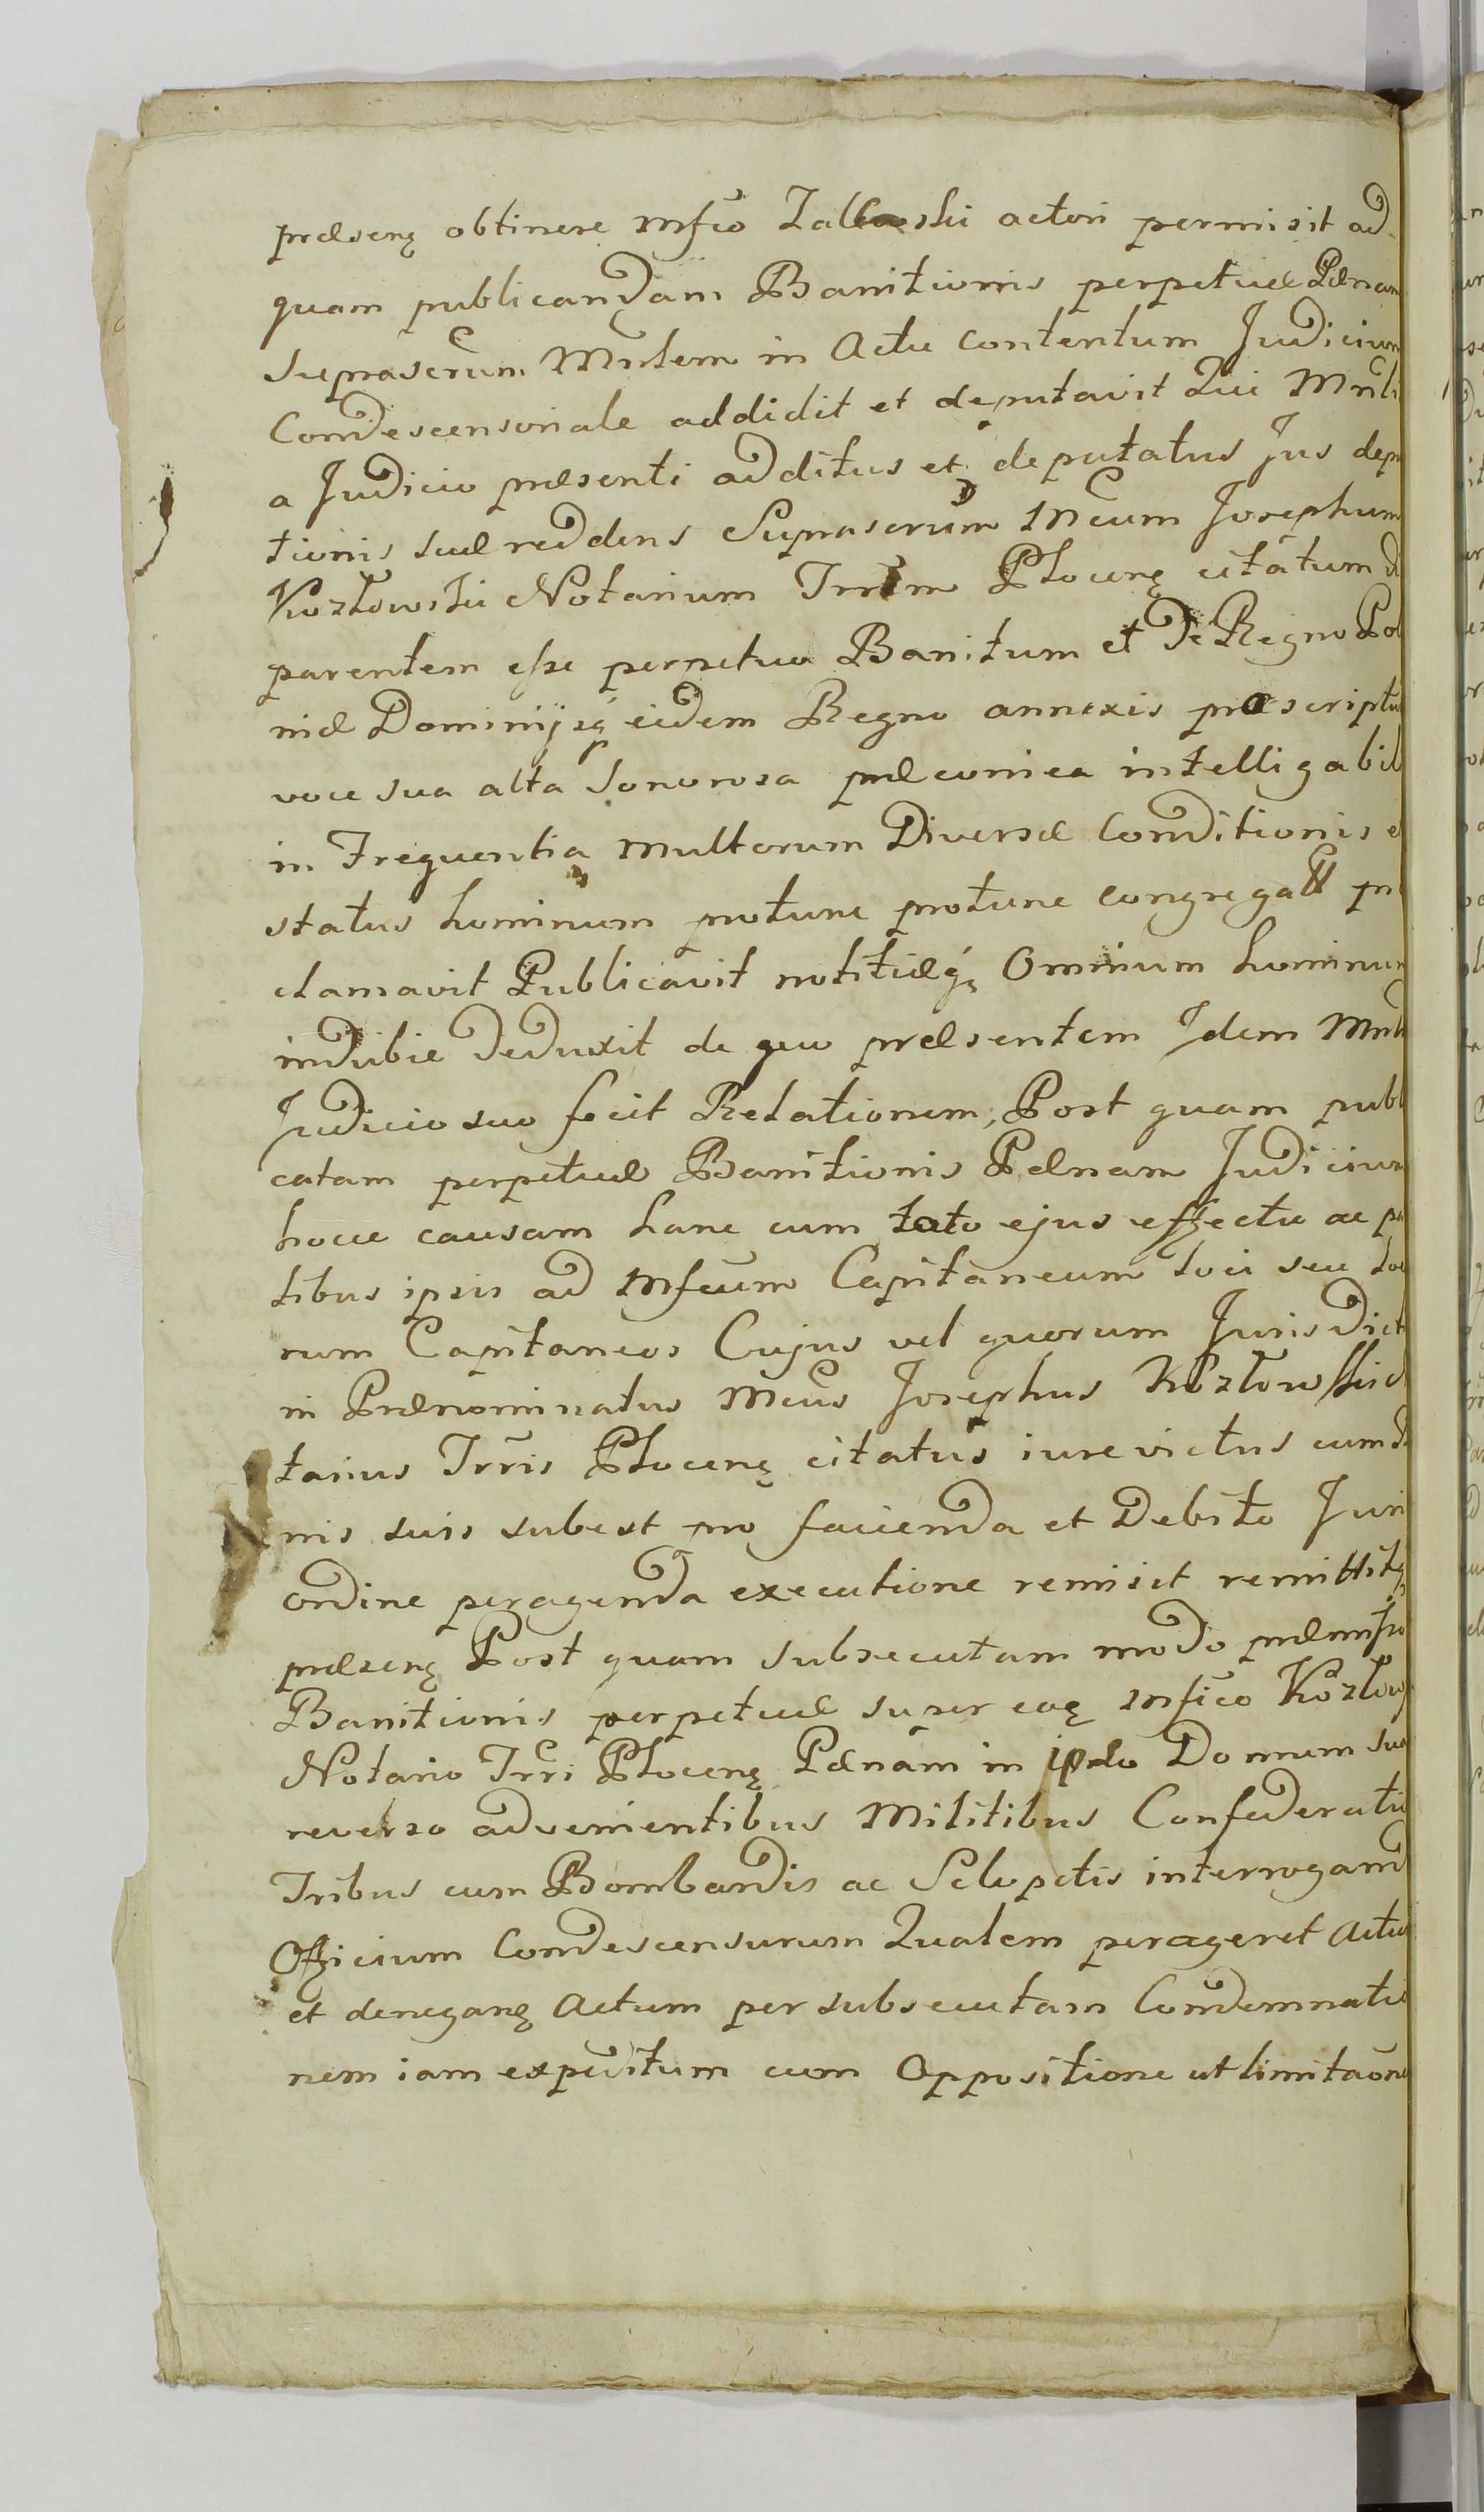 præsenę obtinere Mfco Zaleski actori permisit ad
quam publicandam Banitionis perpetuæ Pænam
Suprascrum Mnlem in Actu contentum Judicium
Condescensoriale addidit et deputavit Qui Mnlis
a Judicio præsenti additus et deputatus Jus depu
tionis suæ reddens Suprascrum Mcum Josephum
Kozłowski Notarium Trrem Plocenę citatum
parentem esse perpetuo Banitum et de Regno Polo
niæ Dominijsq eidem Regno annexis præscriptum
voce sua alta sonorosa præconica intelligabili
in Frequentia multorum Diversæ Conditionis et
status hominum protunc protunc congregatt pro
clamavit Publicavit notitiæq Omnium hominum
indubie deduxit de quo præsentem Idem Mnlis
Judicio suo fecit Relationem, Post quam publi
catam perpetuæ Banitionis Pænam Judicium
hocce causam hanc cum toto ejus effectu ac par
tibus ipsis ad Mfcum Capitaneum loci seu loco
rum Capitaneos Cujus vel quorum Jurisdict
in Prænominatus Mcus Josephus Kozłowski
tarius Trris Plocenę citatus iure victus cum
nis suis subest pro facienda et Debito Juris
ordine peragenda executione remisit remittitq
præsenę Post quam subsecutam modo præmisso
Banitionis perpetuæ super eoę Mfico Kozłow
Notario Trri Plocenę Pænam in ipso Domum sua
reverso advenientibus Militibus Confederatis
Tribus cum Bombardis ac Sclopetis interrogand
Officium Condescensorum Qualem perageret Actum
et deneganę Actum per subsecutam Condemnatio
nem iam expeditum cum Oppositione ut limitaone